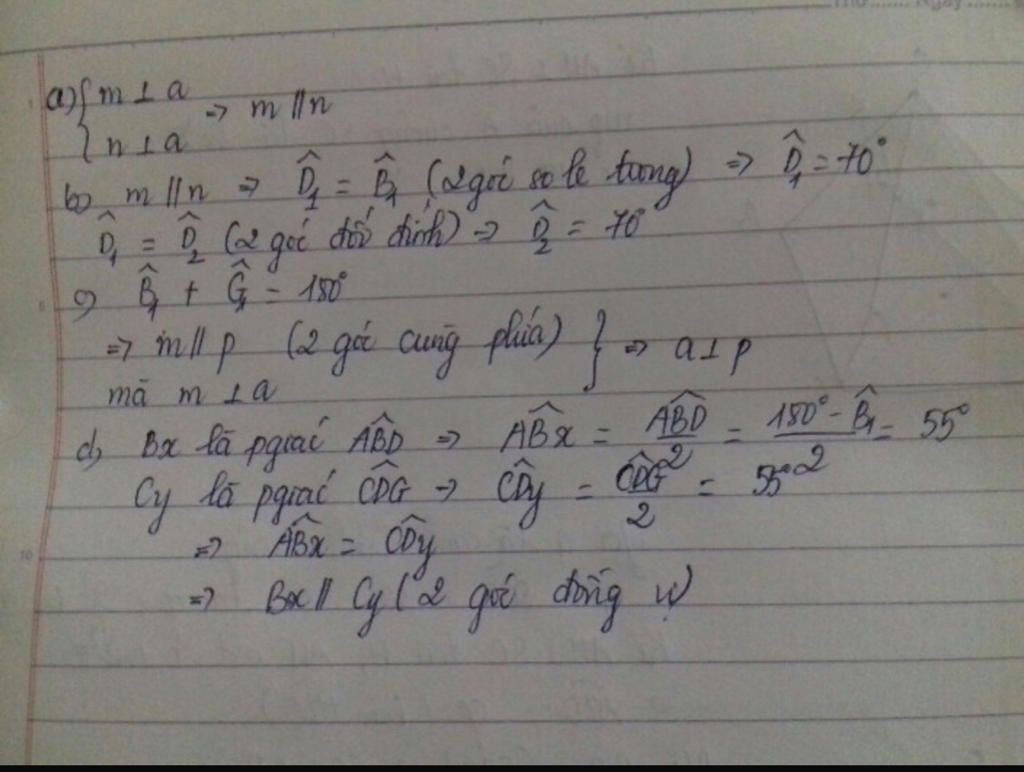 a) { m ⊥ a
{ n ⊥ a ⇒ m // n
b) m // n ⇒ D̂₁ = B̂₁ (2 góc so le trong) ⇒ D̂₁ = 70°
D̂₁ = D̂₂ (2 góc đối đỉnh) ⇒ D̂₂ = 70°
c) B̂₁ + Ĝ₁ = 180°
⇒ m // p (2 góc cùng phía) } ⇒ a ⊥ p
mà m ⊥ a
d, Bx là pgiác ABD̂ ⇒ ABx̂ = ABD̂/2 = (180° - B̂₁)/2 = 55°
Cy là pgiác CDĜ ⇒ CDŷ = CDĜ/2 = 55°
⇒ ABx̂ = CDŷ
⇒ Bx // Cy (2 góc đồng vị)